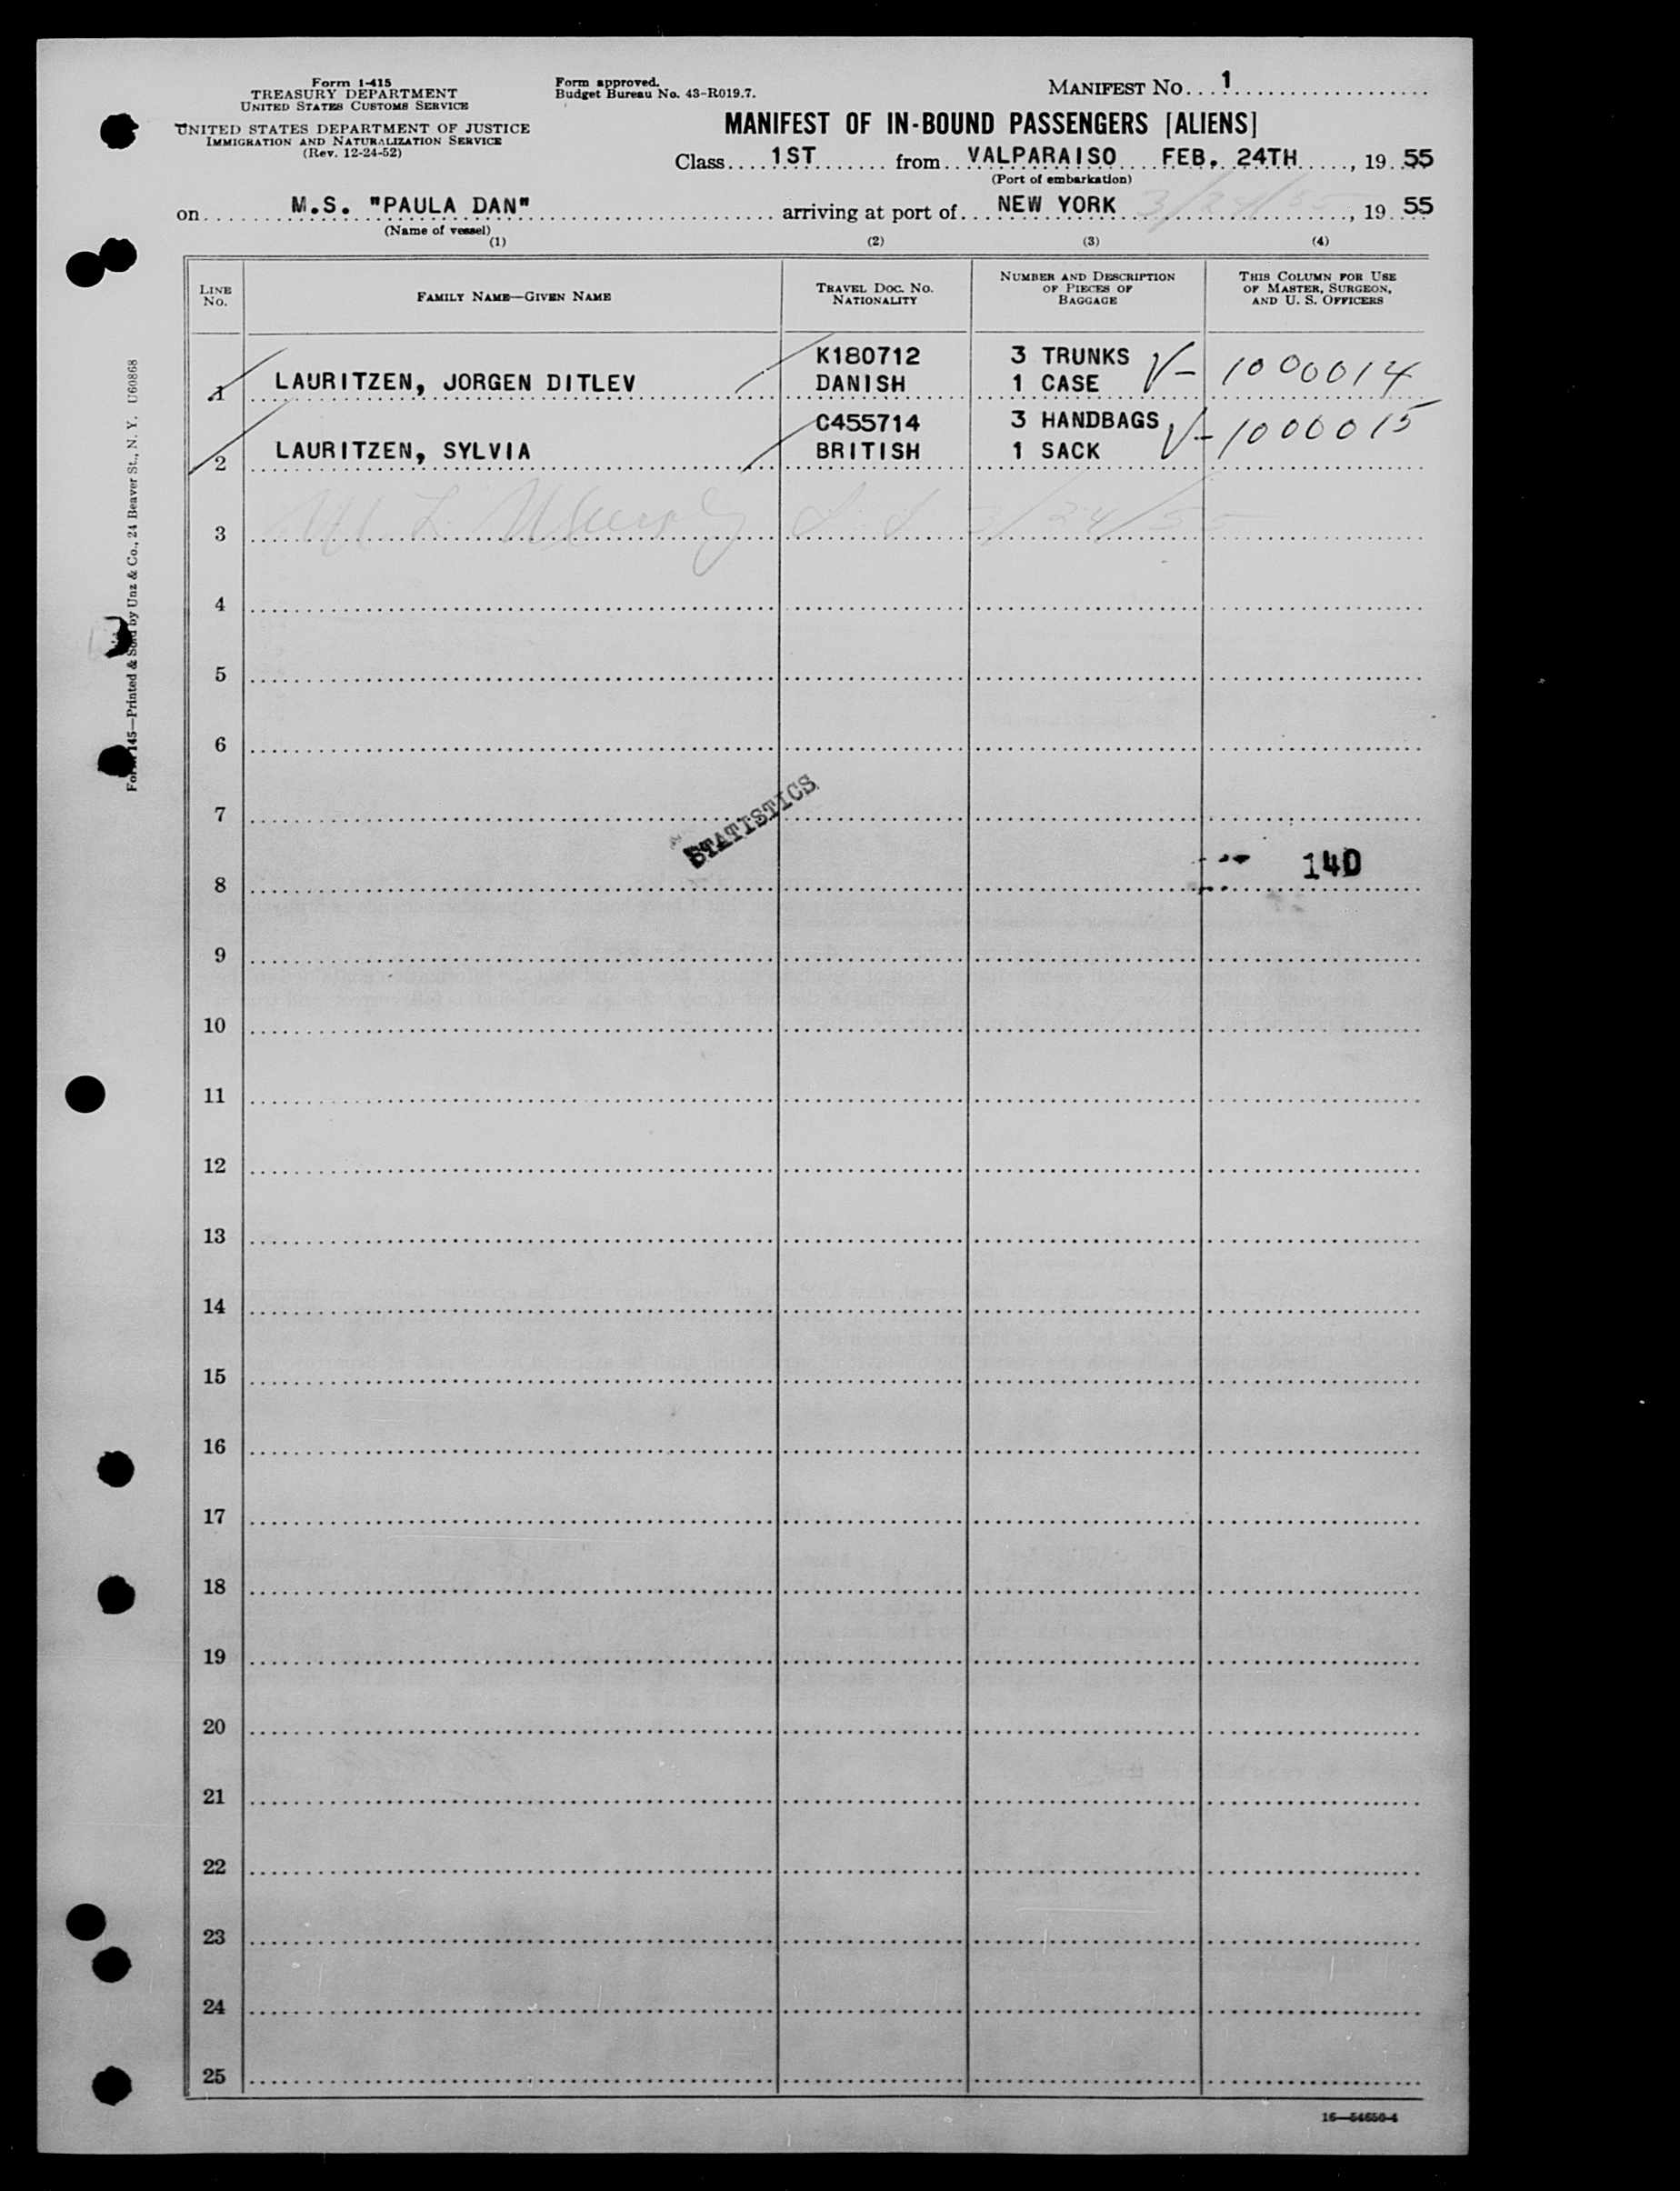 Form 1-415
TREASURY DEPARTMENT
UNITED STATES CUSTOMS SERVICE
UNITED STATES DEPARTMENT OF JUSTICE
IMMIGRATION AND NATURALIZATION SERVICE
(Rev. 12-24-52)
Form approved.
Budget Bureau No. 43-R019.7.
MANIFEST No. 1
MANIFEST OF IN-BOUND PASSENGERS [ALIENS]
Class 1ST from VALPARAISO FEB. 24TH, 19 55
(Port of embarkation)
on M.S. "PAULA DAN" arriving at port of NEW YORK 3/24/55, 19 55
(Name of vessel)
(1) (2) (3) (4)
LINE No.
FAMILY NAME—GIVEN NAME
TRAVEL DOC. NO.
NATIONALITY
NUMBER AND DESCRIPTION
OF PIECES OF
BAGGAGE
THIS COLUMN FOR USE
OF MASTER, SURGEON,
AND U. S. OFFICERS
K180712 3 TRUNKS
1 LAURITZEN, JORGEN DITLEV DANISH 1 CASE V- 1000014
C455714 3 HANDBAGS
2 LAURITZEN, SYLVIA BRITISH 1 SACK V- 1000015
3 3/24/55
4
5
6
7
STATISTICS
14D
8
9
10
11
12
13
14
15
16
17
18
19
20
21
22
23
24
25
16—54650-4
Form 145—Printed & Sold by Unz & Co., 24 Beaver St., N. Y. U60868